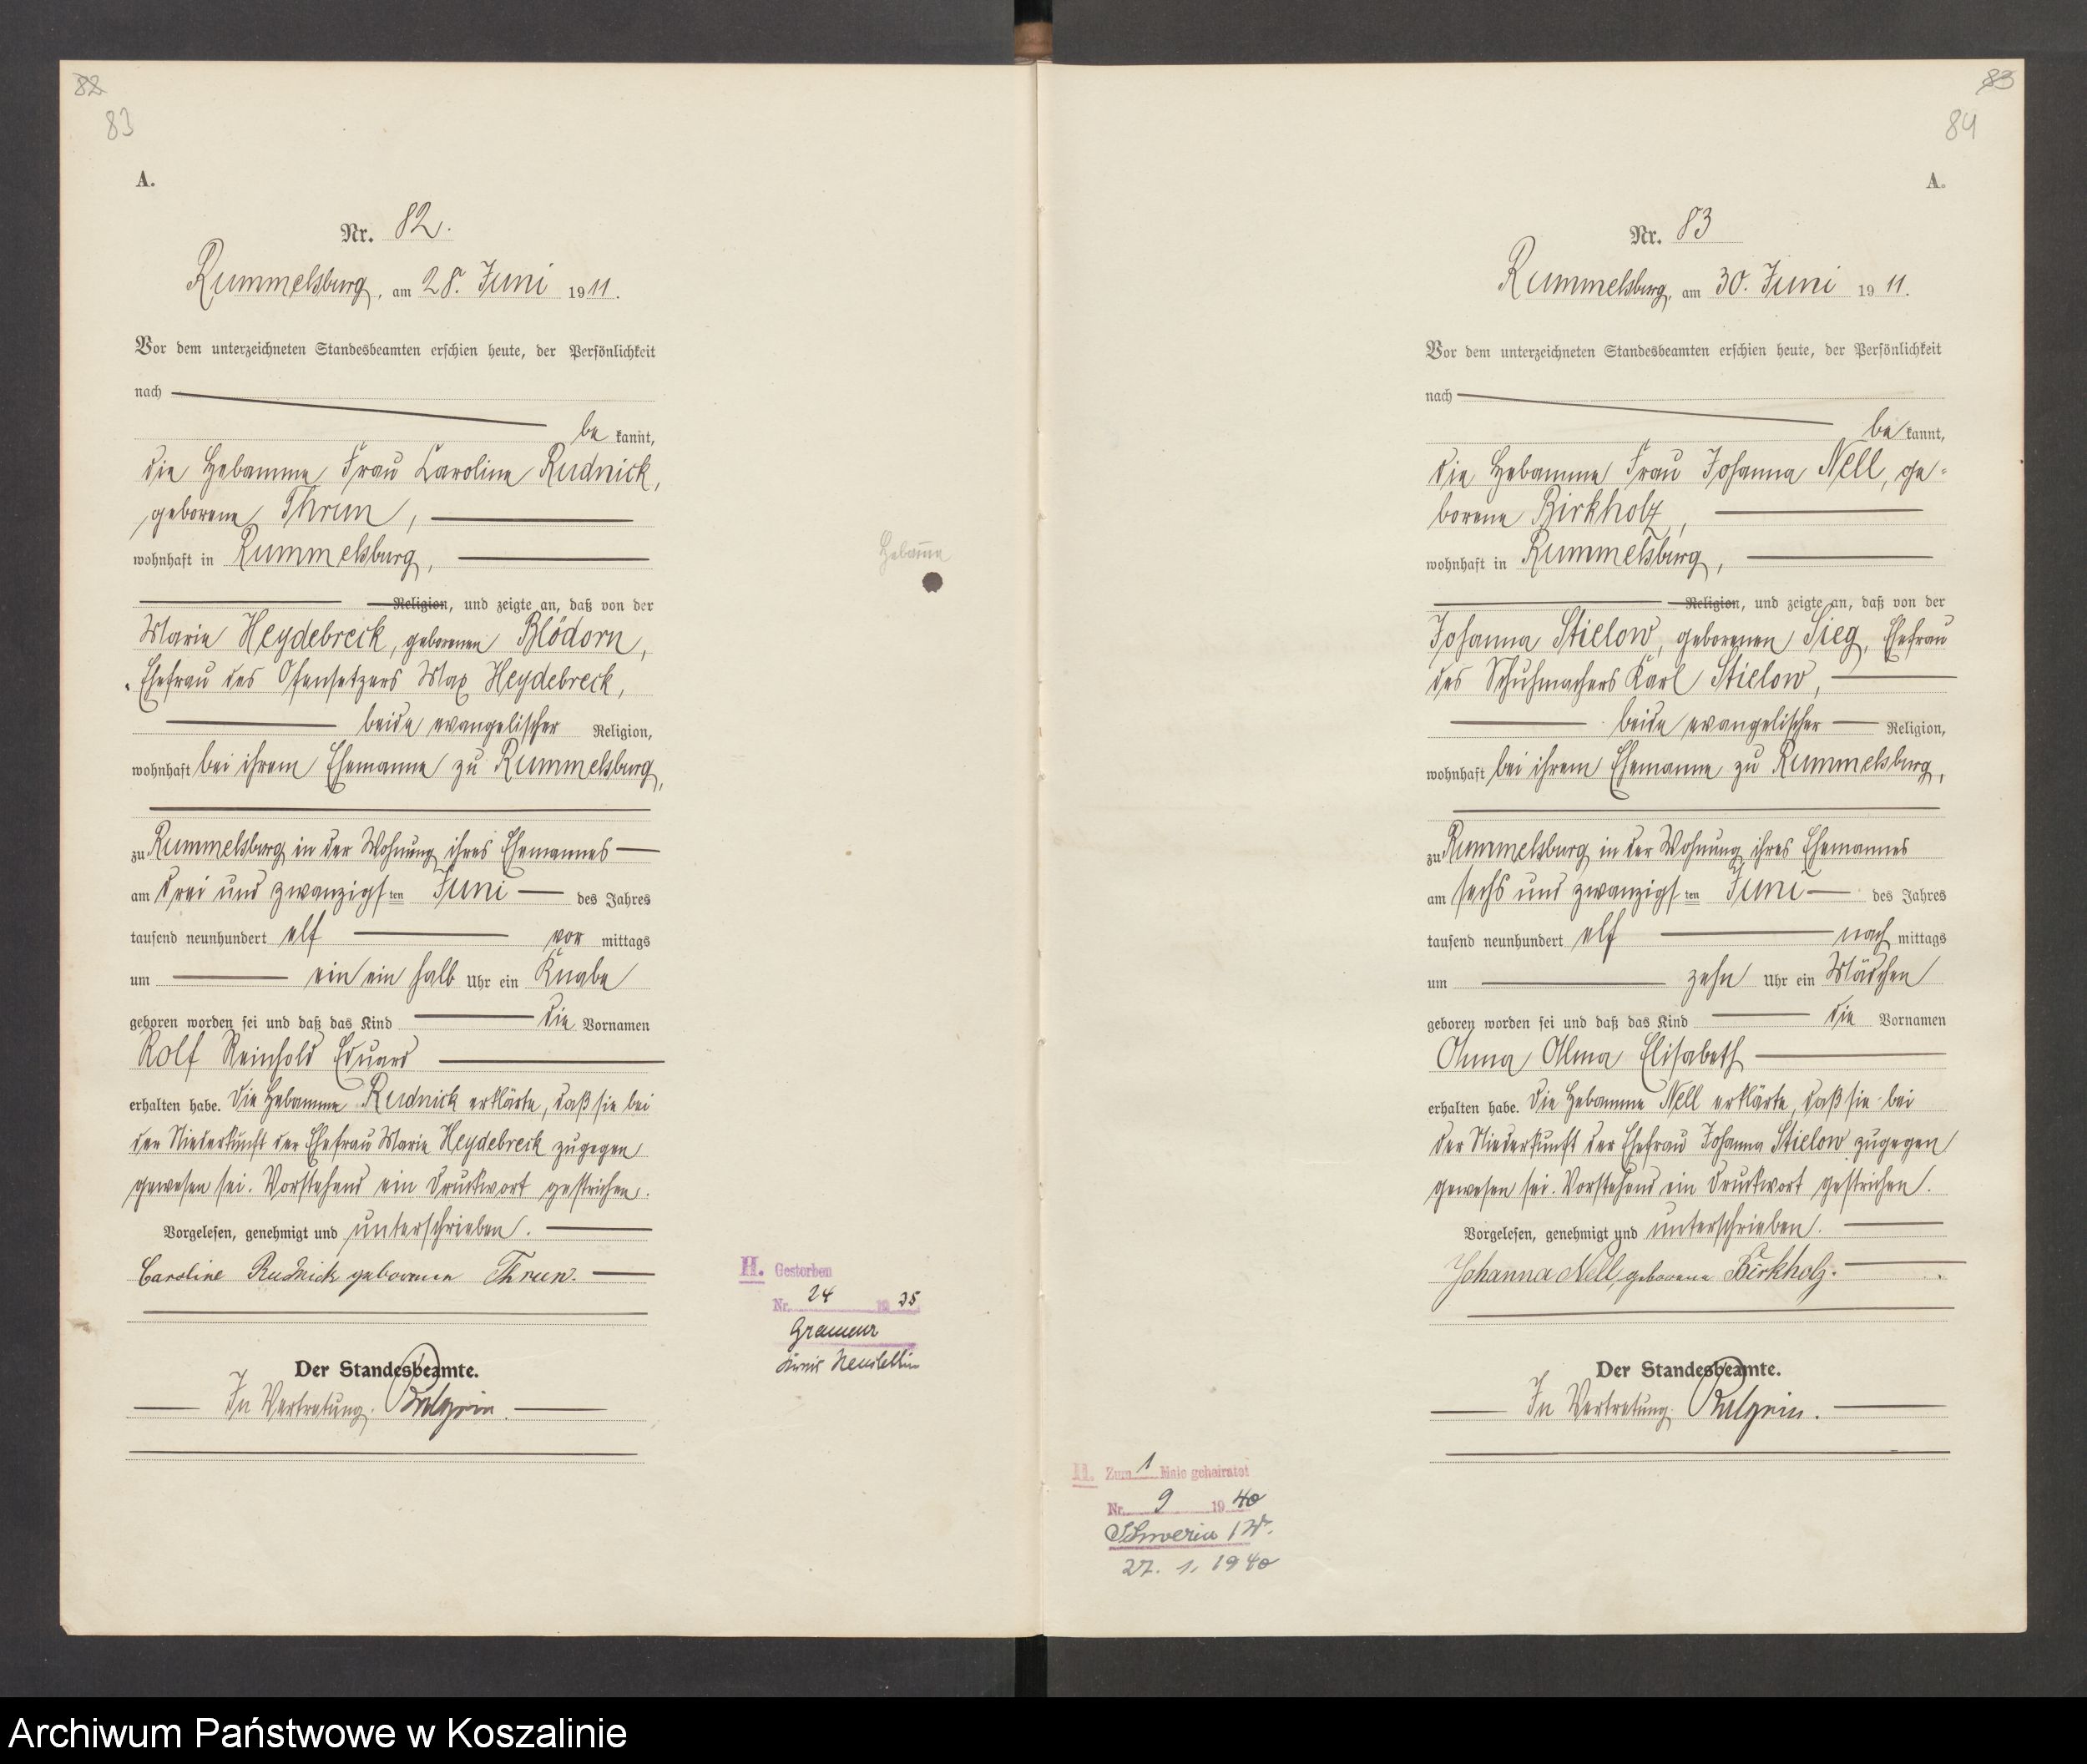 82
83
A.
Nr. 82.
Rummelsburg, am 28. Juni 1911.
Vor dem unterzeichneten Standesbeamten erschien heute, der Persönlichkeit
nach
be kannt,
die Hebamme Frau Caroline Rudnick,
geborene Thrun,
wohnhaft in Rummelsburg,
Religion, und zeigte an, daß von der
Marie Heydebreck, geborenen Blödorn,
Ehefrau des Ofensetzers Max Heydebreck,
beide evangelischer Religion,
wohnhaft bei ihrem Ehemanne zu Rummelsburg,
zu Rummelsburg in der Wohnung ihres Ehemannes
am drei und zwanzigsten Juni des Jahres
tausend neunhundert elf vor mittags
um ein ein halb Uhr ein Knabe
geboren worden sei und daß das Kind die Vornamen
Rolf Reinhold Eduard
erhalten habe. Die Hebamme Rudnick erklärte, daß sie bei
der Niederkunft der Ehefrau Marie Heydebreck zugegen
gewesen sei. Vorstehend ein Druckwort gestrichen.
Vorgelesen, genehmigt und unterschrieben.
Caroline Rudnick geborene Thrun.
Der Standesbeamte.
In Vertretung.
Hebamme
H. Gestorben
Nr. 24 1935
Kreis Neustettin
83
84
A.
Nr. 83
Rummelsburg, am 30. Juni 1911.
Vor dem unterzeichneten Standesbeamten erschien heute, der Persönlichkeit
nach
be kannt,
die Hebamme Frau Johanna Nell, ge-
borene Birkholz,
wohnhaft in Rummelsburg,
Religion, und zeigte an, daß von der
Johanna Stielow, geborenen Sieg, Ehefrau
des Schuhmachers Karl Stielow,
beide evangelischer Religion,
wohnhaft bei ihrem Ehemanne zu Rummelsburg,
zu Rummelsburg in der Wohnung ihres Ehemannes
am sechs und zwanzigsten Juni des Jahres
tausend neunhundert elf nach mittags
um zehn Uhr ein Mädchen
geboren worden sei und daß das Kind die Vornamen
Anna Alma Elisabeth
erhalten habe. Die Hebamme Nell erklärte, daß sie bei
der Niederkunft der Ehefrau Johanna Stielow zugegen
gewesen sei. Vorstehend ein Druckwort gestrichen.
Vorgelesen, genehmigt und unterschrieben.
Johanna Nell, geborene Birkholz.
Der Standesbeamte.
In Vertretung.
H. Zum 1 Male geheiratet
Nr. 9 1940
Schwerin / W.
27. 1. 1940
Archiwum Państwowe w Koszalinie